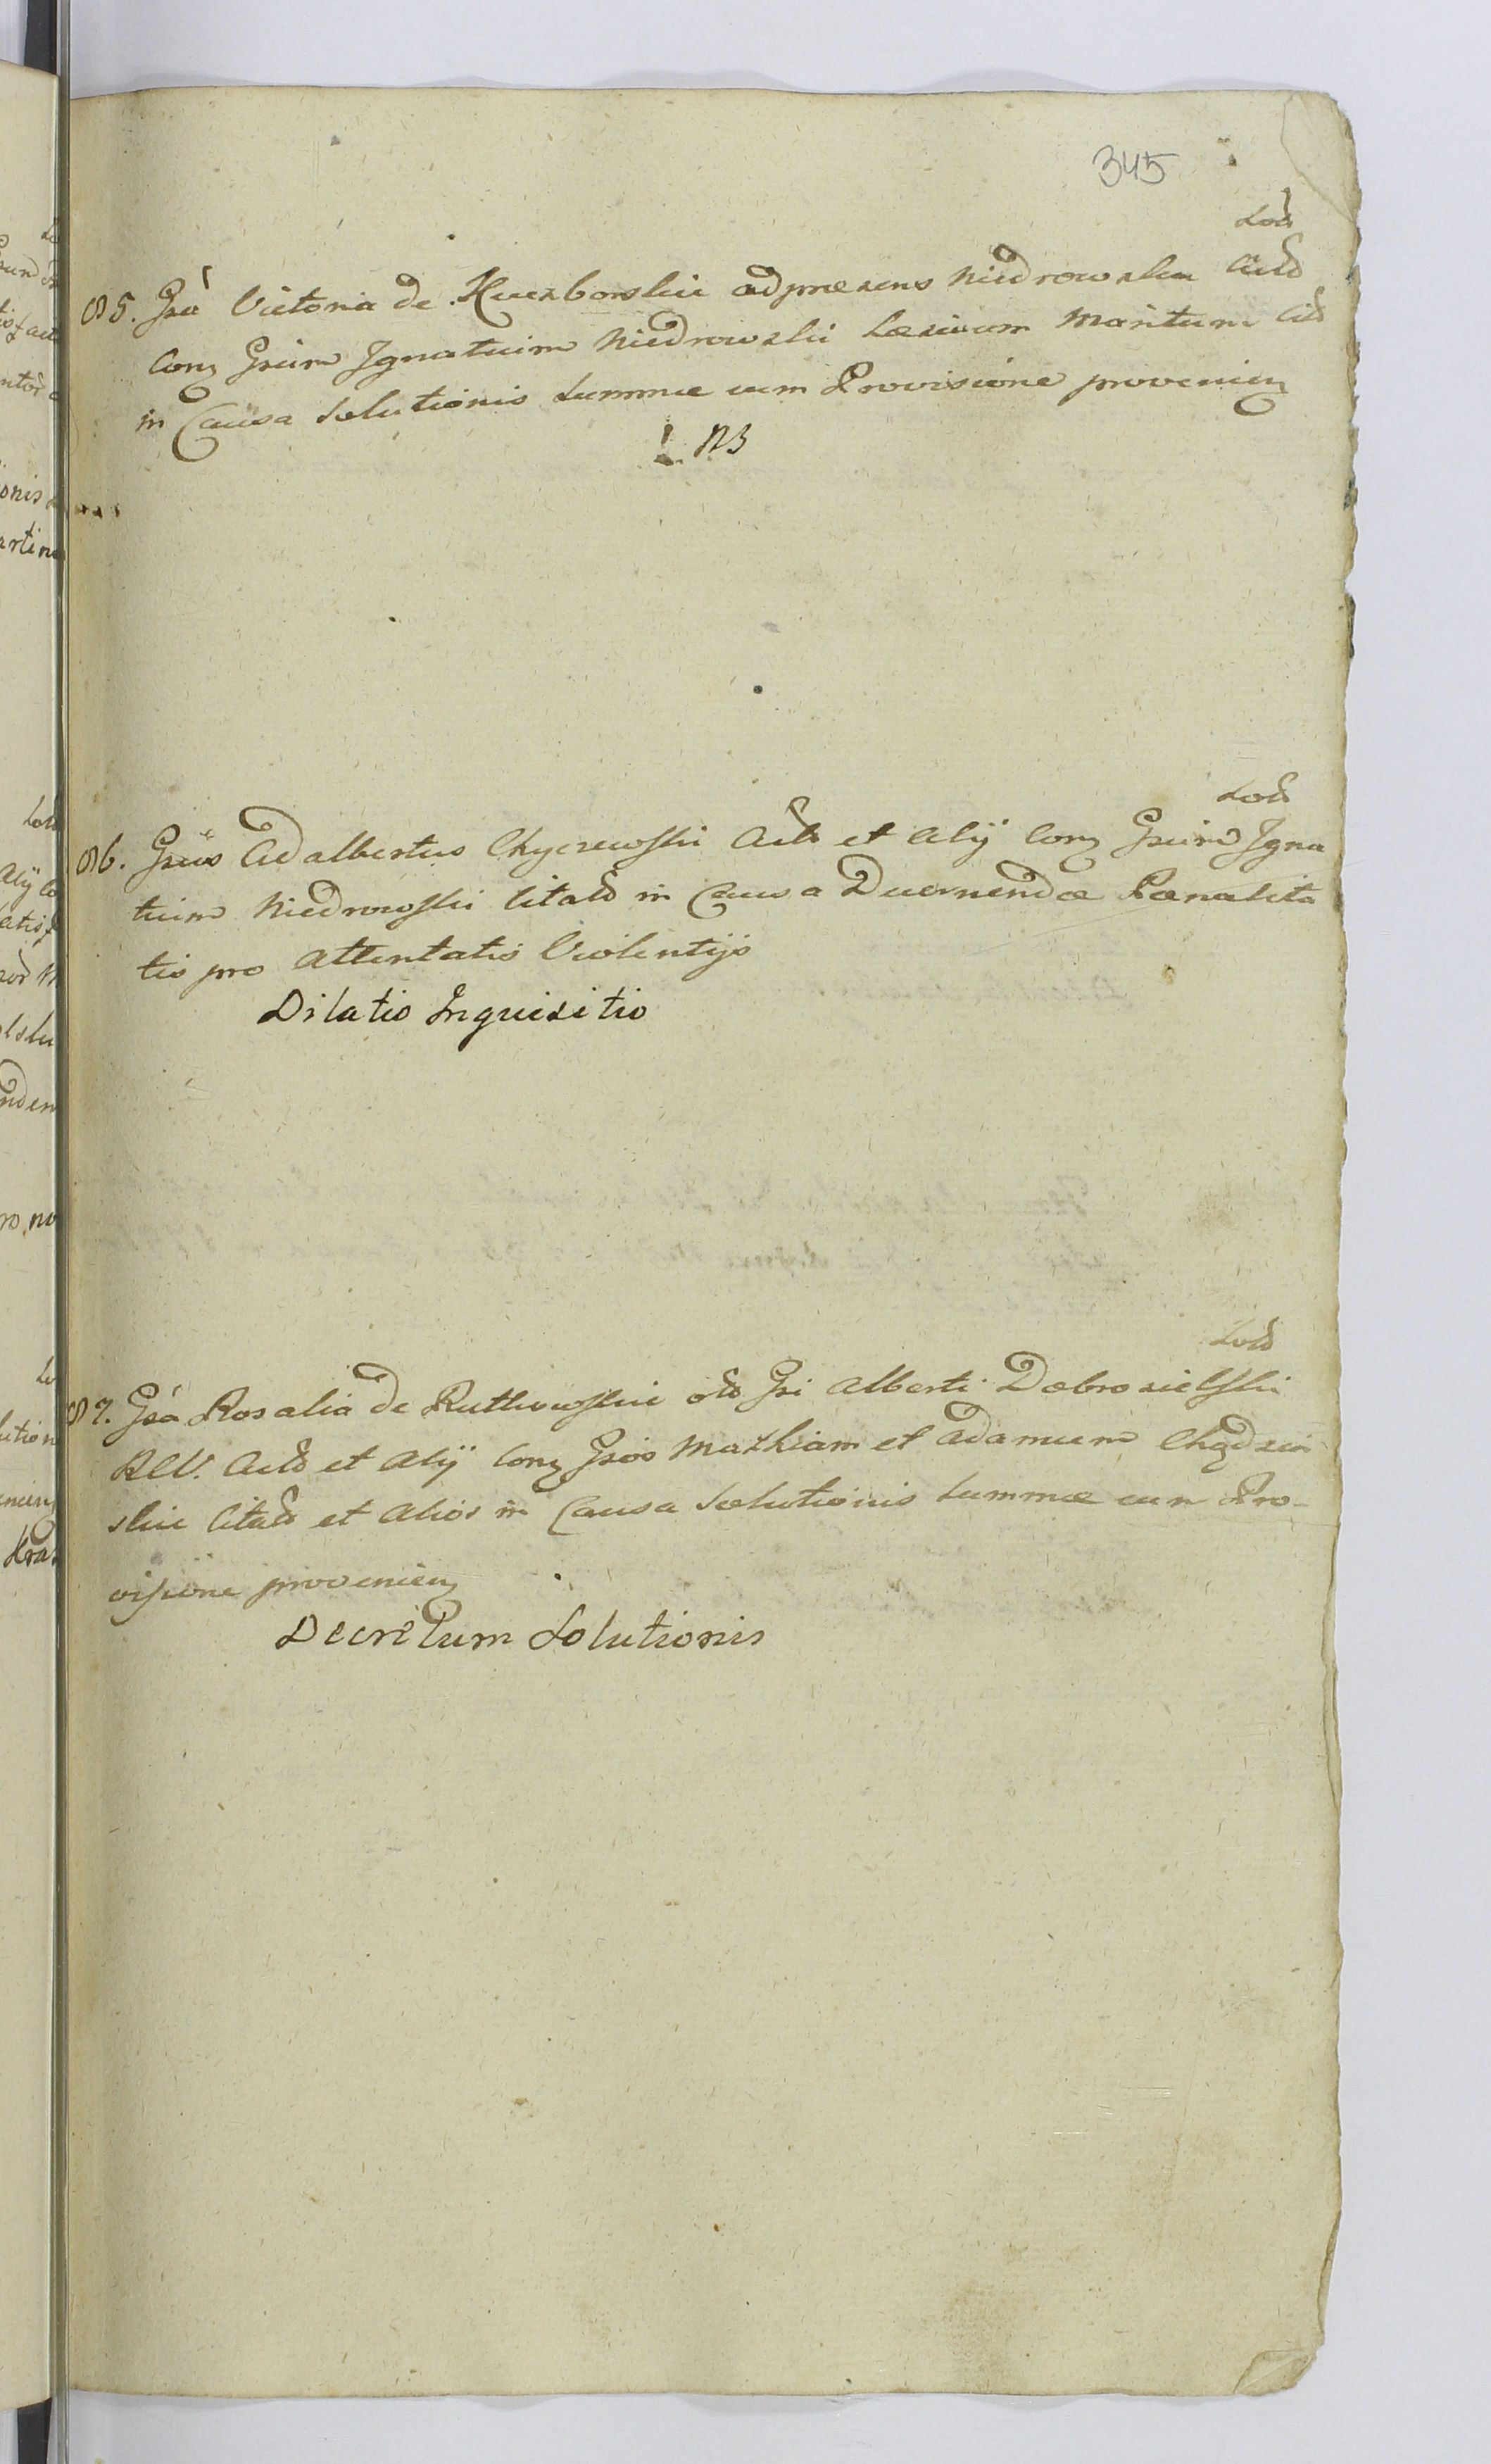 345
85. Gsa Victoria de Kuczborskie adpraesens Niedrowska Actd
Conz Gsum Ignatium Niedrowski Laesivum Maritum Citd
in Causa Solutionis Summae cum Provisione provenienz
NB
86. Gsus Adalbertus Chyczewski Actd et Alij Conz Gsum Igna
tium Niedrowski Citatd in Causa Decernendae Paenalita
tis pro Attentatis Violentijs
Dilatio Inquisitio
87. Gsa Rosalia de Rutkowskie Gsi Alberti Dobrosielski
Actd et Alij Conz Gsos Mathiam et Adamum Chądzin
skie Citatd et Alios in Causa Solutionis Summae cum Pro-
visione provenienz
Decretum Solutionis